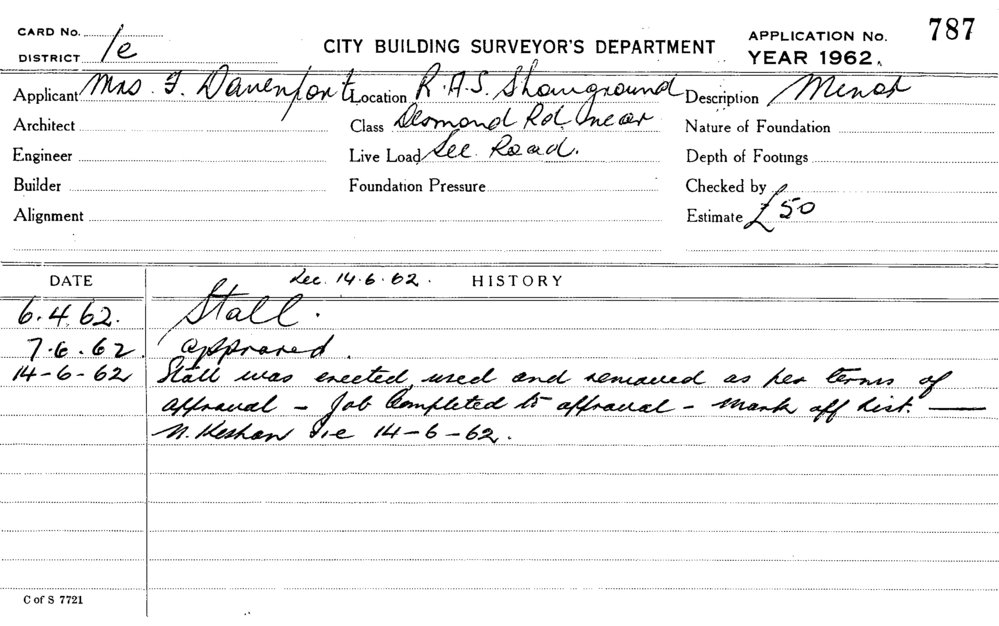 CARD No.
DISTRICT 1e
CITY BUILDING SURVEYOR'S DEPARTMENT
APPLICATION No. 787
YEAR 1962.
Applicant Mrs. F. Davenport Location R.A.S. Showground Description Minor
Architect Class Desmond Rd. near Nature of Foundation
Engineer Live Load Lee Road. Depth of Footings
Builder Foundation Pressure Checked by
Alignment Estimate £50
DATE Dec. 14.6.62. HISTORY
6.4.62. Stall.
7.6.62. approved.
14-6-62 Stall was erected, used and removed as per terms of
approval - Job Completed to approval - Mark off List. —
N. Keshan 14-6-62.
C of S 7721